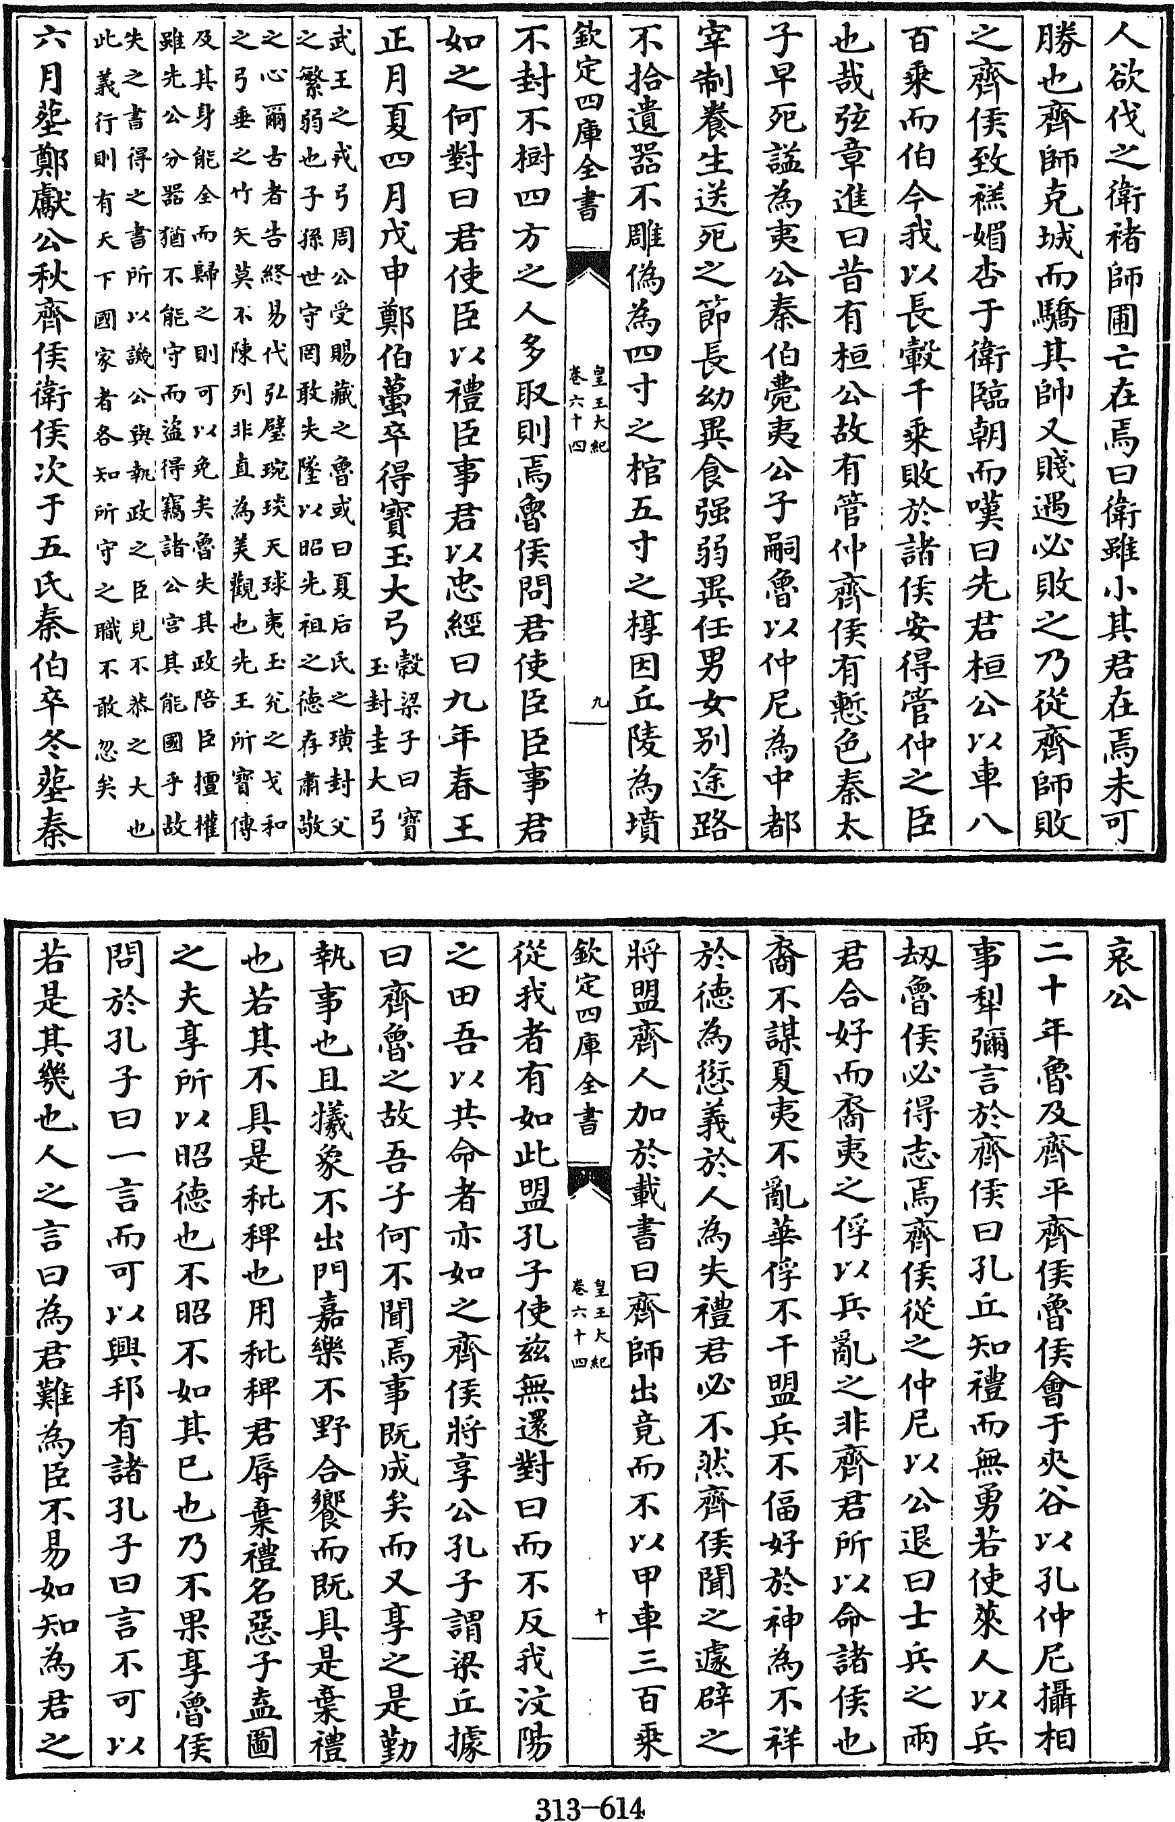 人欲伐之衛褚師圃亡在焉曰衛雖小其君在焉未可
勝也齊師克城而驕其帥又賤遇必敗之乃從齊師敗
之齊侯致禚媚杏于衛臨朝而嘆曰先君桓公以車八
百乘而伯今我以長轂千乘敗於諸侯安得管仲之臣
也哉弦章進曰昔有桓公故有管仲齊侯有慙色秦太
子早死謚為夷公秦伯薨夷公子嗣魯以仲尼為中都
宰制養生送死之節長幼異食强弱異任男女別途路
不拾遺器不雕偽為四寸之棺五寸之椁因丘陵為墳
欽定四庫全書
皇王大紀
卷六十四
九
不封不樹四方之人多取則焉魯侯問君使臣臣事君
如之何對曰君使臣以禮臣事君以忠經曰九年春王
正月夏四月戊申鄭伯蠆卒得寶玉大弓
穀梁子曰寶
玉封圭大弓
武王之戎弓周公受賜藏之魯或曰夏后氏之璜封父
之繁弱也子孫世守罔敢失墜以昭先祖之德存肅敬
之心爾古者告終易代弘璧琬琰天球夷玉兊之戈和
之弓垂之竹矢莫不陳列非直為美觀也先王所寶傳
及其身能全而歸之則可以免矣魯失其政陪臣擅權
雖先公分器猶不能守而盜得竊諸公宮其能國乎故
失之書得之書所以譏公與執政之臣見不恭之大也
此義行則有天下國家者各知所守之職不敢忽矣
六月塟鄭獻公秋齊侯衛侯次于五氏秦伯卒冬塟秦
哀公
二十年魯及齊平齊侯魯侯會于夾谷以孔仲尼攝相
事犁彌言於齊侯曰孔丘知禮而無勇若使萊人以兵
刼魯侯必得志焉齊侯從之仲尼以公退曰士兵之兩
君合好而裔夷之俘以兵亂之非齊君所以命諸侯也
裔不謀夏夷不亂華俘不干盟兵不偪好於神為不祥
於德為愆義於人為失禮君必不然齊侯聞之遽辟之
將盟齊人加於載書曰齊師出竟而不以甲車三百乘
欽定四庫全書
皇王大紀
卷六十四
十
從我者有如此盟孔子使兹無還對曰而不反我汶陽
之田吾以共命者亦如之齊侯將享公孔子謂梁丘據
曰齊魯之故吾子何不聞焉事既成矣而又享之是勤
執事也且犧象不出門嘉樂不野合饗而既具是棄禮
也若其不具是秕稗也用秕稗君辱棄禮名惡子盍圖
之夫享所以昭德也不昭不如其已也乃不果享魯侯
問於孔子曰一言而可以興邦有諸孔子曰言不可以
若是其幾也人之言曰為君難為臣不易如知為君之
313-614